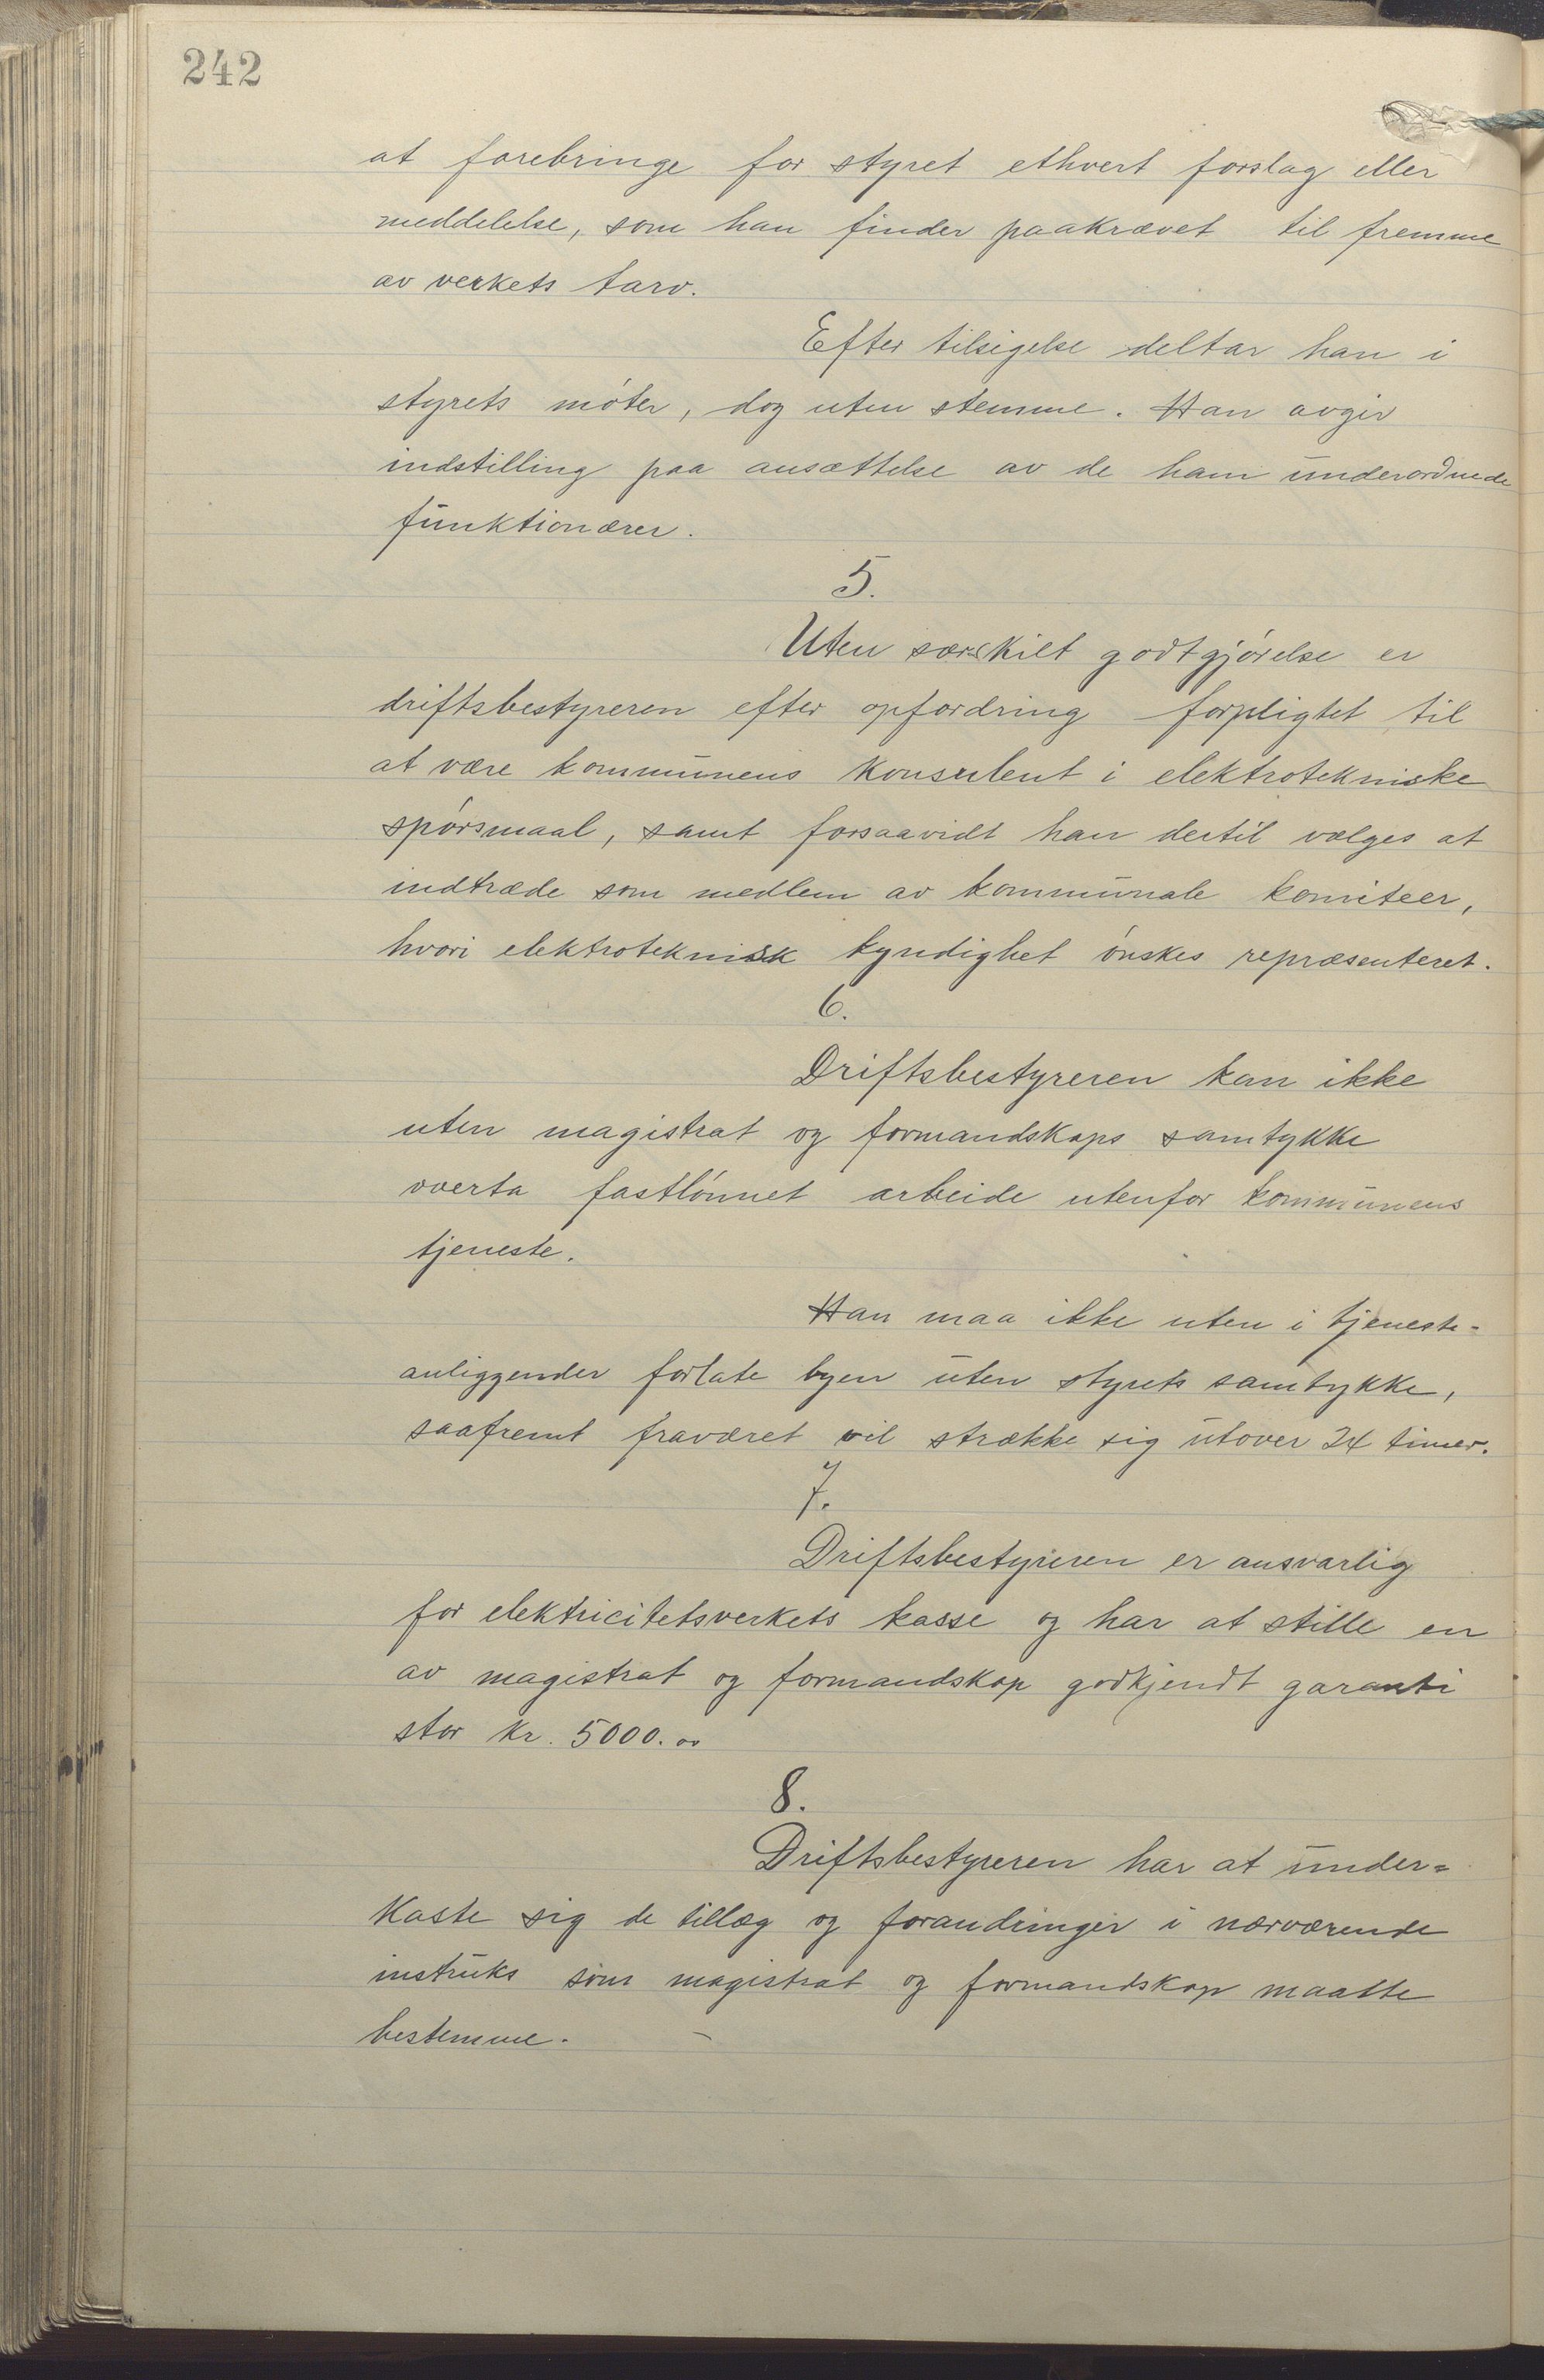 242
at forebringe for styret ethvert forslag eller
meddelelse, som han finder paakrævet til fremme
av verkets tarv.
Efter tilsigelse deltar han i
styrets móter, dog uten stemme. Han avgir
indstilling paa ansættelse av de ham underordnede
funktionærer.
5.
Uten særskilt godtgjórelse er
driftsbestyreren efter opfordring forpligtet til
at være kommunens konsulent i elektrotekniske
spórsmaal, samt forsaavidt han dertil vælges at
indtræde som medlem av kommunale komiteer,
hvori elektroteknisk kyndighet ónskes repræsenteret.
6.
Driftsbestyreren kan ikke
uten magistrat og formandskaps samtykke
overta fastlónnet arbeide utenfor kommunens
tjeneste.
Han maa ikke uten i tjeneste-
anliggender forlate byen uten styrets samtykke,
saafremt fraværet vil strække sig utover 24 timer.
7.
Driftsbestyreren er ansvarlig
for elektricitetsverkets kasse og har at stille en
av magistrat og formandskap godkjendt garanti
stor kr. 5000.00
8.
Driftsbestyreren har at under=
kaste sig de tillæg og forandringer i nærværende
instruks som magistrat og formandskap maatte
bestemme. -